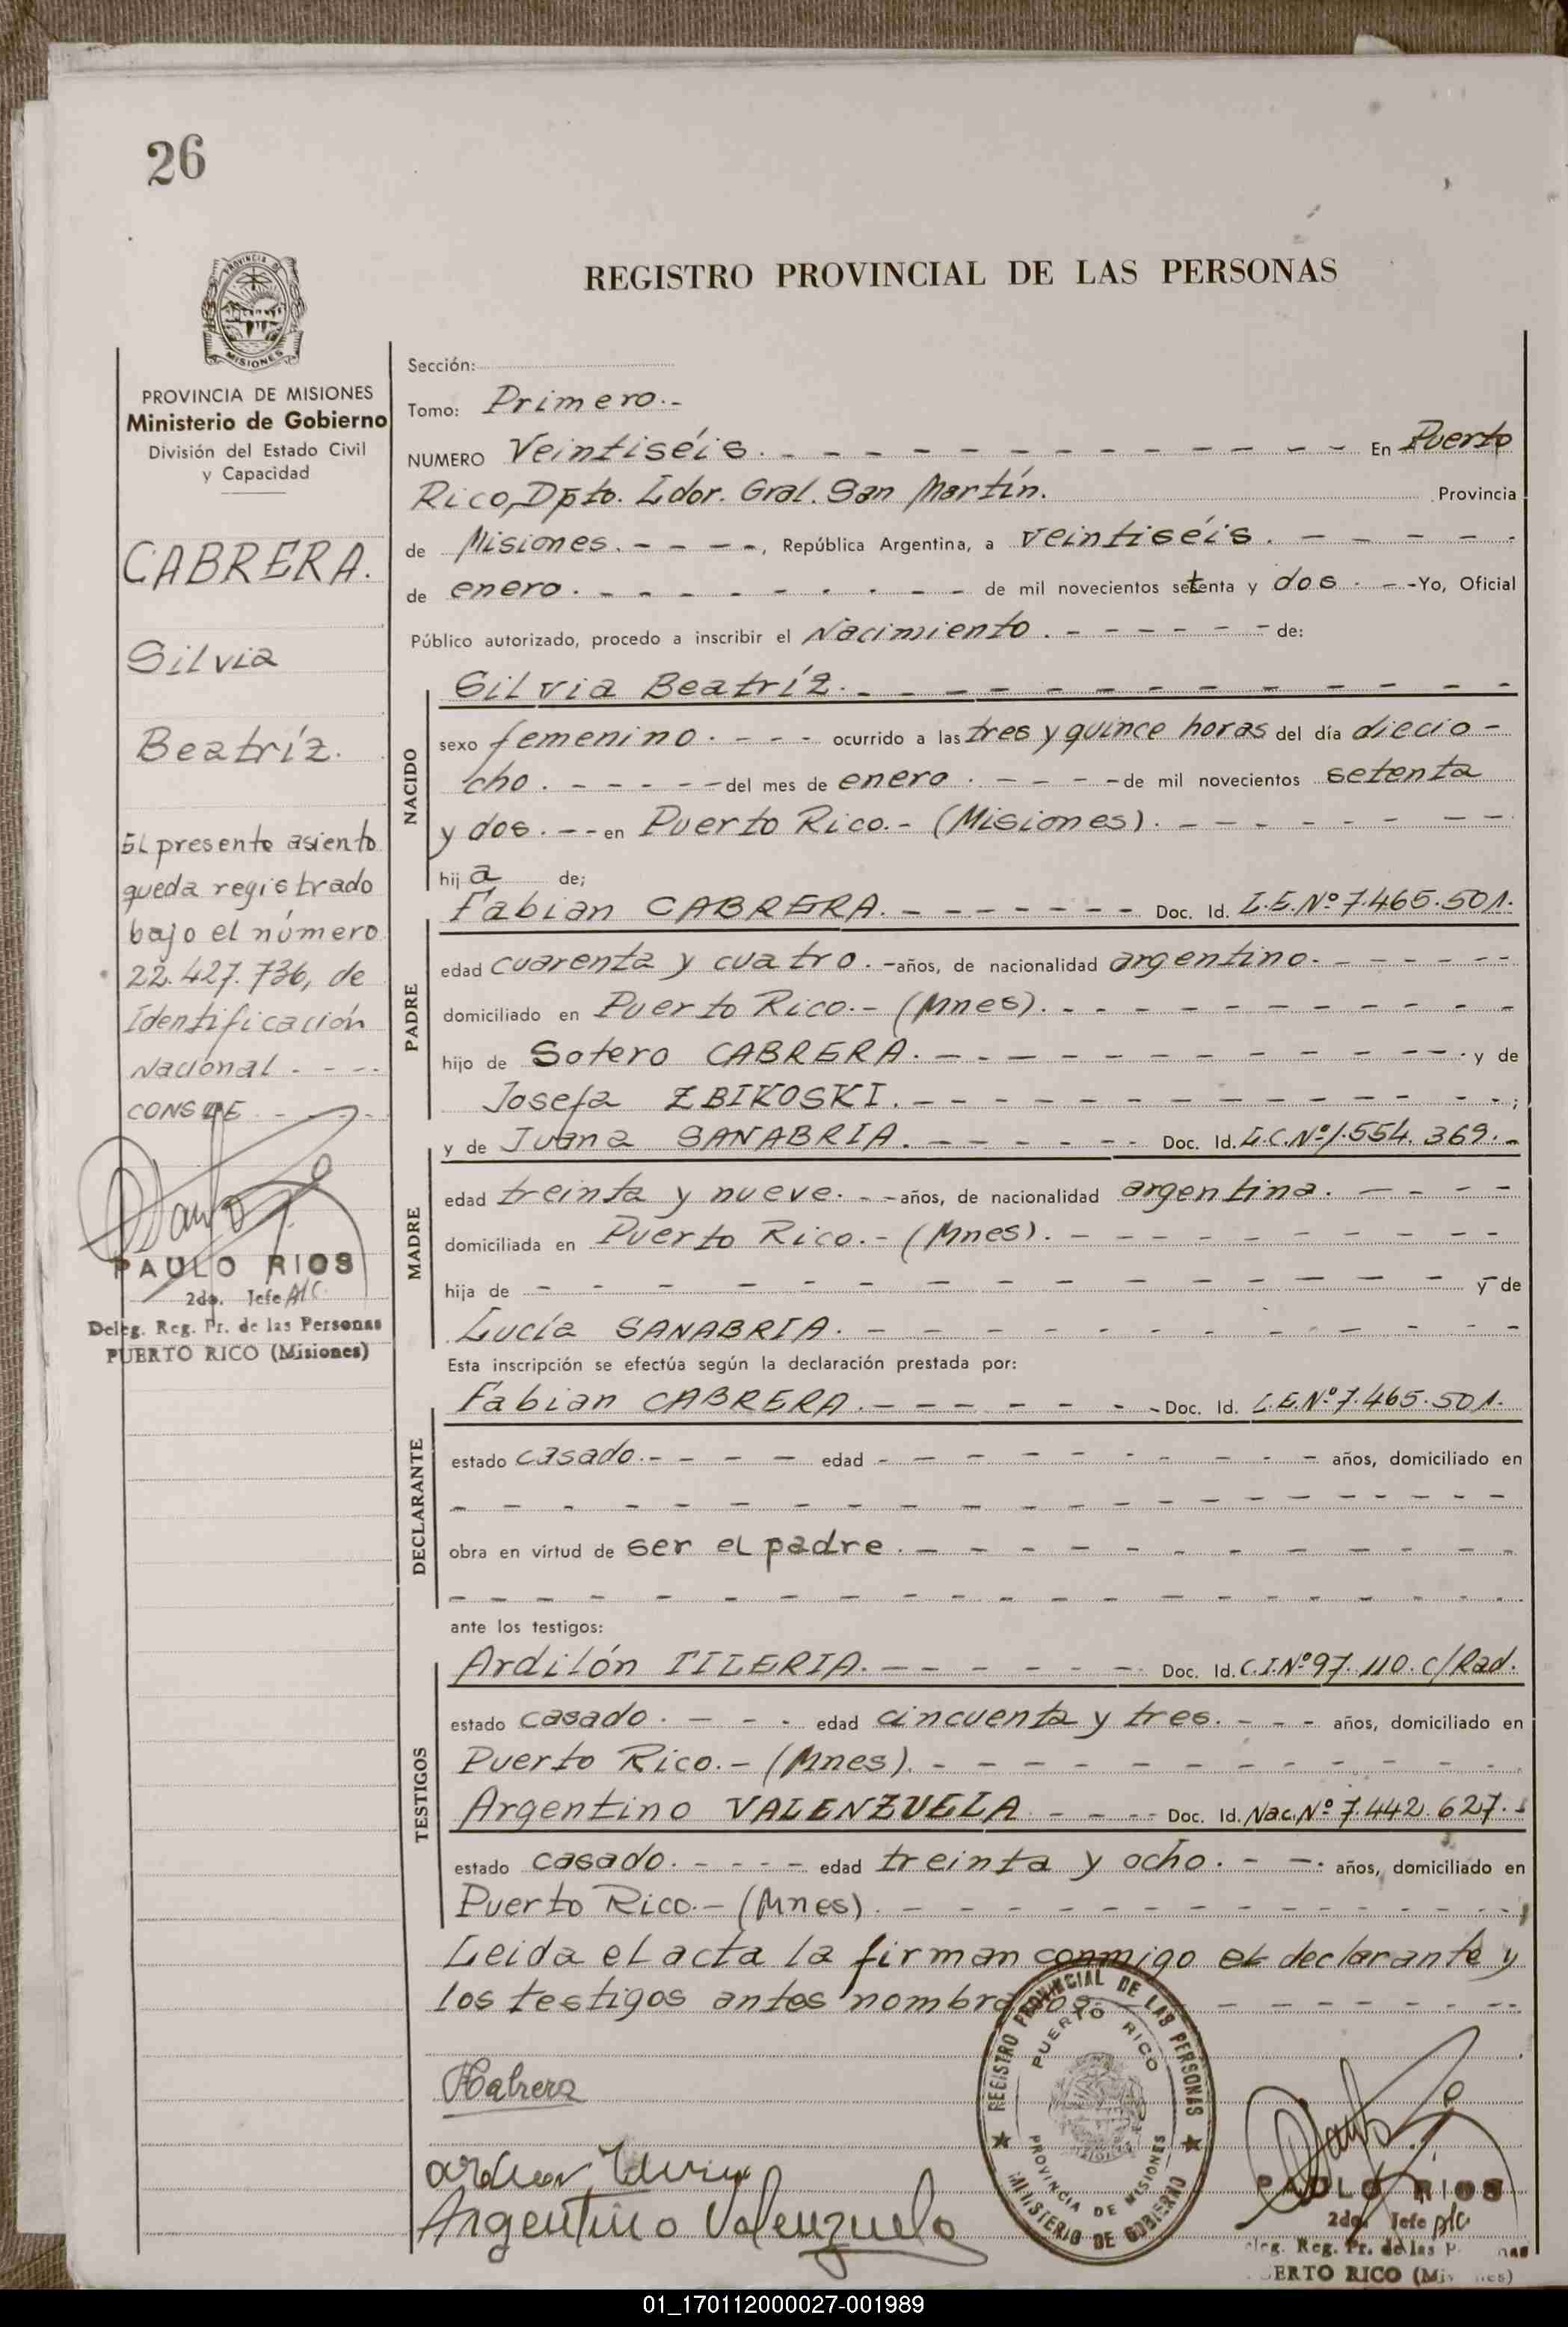 26
PROVINCIA DE
MISIONES
PROVINCIA DE MISIONES
Ministerio de Gobierno
División del Estado Civil
y Capacidad
CABRERA.
Silvia
Beatríz.
El presente asiento
queda registrado
bajo el número
22.427.736, de
Identificación
Nacional - - -
CONSTE - - -
PAULO RIOS
2do. Jefe A/C
Deleg. Reg. Pr. de las Personas
PUERTO RICO (Misiones)
REGISTRO PROVINCIAL DE LAS PERSONAS
Sección:
Tomo: Primero.-
NUMERO Veintiséis. - - - - - - - - - - - En Puerto
Rico, Dpto. Ldor. Gral. San Martín. Provincia
de Misiones. - - - -, República Argentina, a veintiséis. - - - - -
de enero. - - - - - - - - - de mil novecientos setenta y dos. - -Yo, Oficial
Público autorizado, procedo a inscribir el Nacimiento. - - - - - - de:
NACIDO
Silvia Beatríz. - - - - - - - - - - - - -
sexo femenino. - - - ocurrido a las tres y quince horas del día diecio-
cho. - - - - - del mes de enero. - - - - de mil novecientos setenta
y dos. - - en Puerto Rico.- (Misiones). - - - - - - - -
hij a de;
PADRE
Fabian CABRERA. - - - - - - - Doc. Id. L.E.Nº 7.465.501.
edad cuarenta y cuatro. -años, de nacionalidad argentino. - - - - - -
domiciliado en Puerto Rico.- (Mnes). - - - - - - - - - - -
hijo de Sotero CABRERA. - - - - - - - - - - - - y de
Josefa ZBIKOSKI. - - - - - - - - - - - - - ;
MADRE
y de Juana SANABRIA. - - - - - - Doc. Id. L.C.Nº 1.554.369.-
edad treinta y nueve. - -años, de nacionalidad argentina. - - - -
domiciliada en Puerto Rico.- (Mnes). - - - - - - - - - -
hija de - - - - - - - - - - - - - - y de
Lucía SANABRIA. - - - - - - - - - - - - -
Esta inscripción se efectúa según la declaración prestada por:
DECLARANTE
Fabian CABRERA. - - - - - - - Doc. Id. L.E.Nº 7.465.501.
estado casado. - - - - edad - - - - - - - - - - años, domiciliado en
- - - - - - - - - - - - - - - - - - - -
obra en virtud de ser el padre. - - - - - - - - - - - -
- - - - - - - - - - - - - - - - - - - -
ante los testigos:
TESTIGOS
Ardilón TILERIA. - - - - - - Doc. Id. C.I.Nº 97.110. c/Rad.
estado casado. - - - edad cincuenta y tres. - - - años, domiciliado en
Puerto Rico.- (Mnes). - - - - - - - - - - - -
Argentino VALENZUELA - - - - Doc. Id. Nac. Nº 7.442.627.-
estado casado. - - - - edad treinta y ocho. - -. años, domiciliado en
Puerto Rico.- (Mnes). - - - - - - - - - - - - -
Leida el acta la firman conmigo el declarante y
los testigos antes nombrados. - - - - - - - - -
REGISTRO PROVINCIAL DE LAS PERSONAS
PUERTO RICO
PROVINCIA DE MISIONES
MINISTERIO DE GOBIERNO
Argentino Valenzuela
PAULO RIOS
2do. Jefe A/C
Deleg. Reg. Pr. de las
PUERTO RICO (Misiones)
01_170112000027-001989